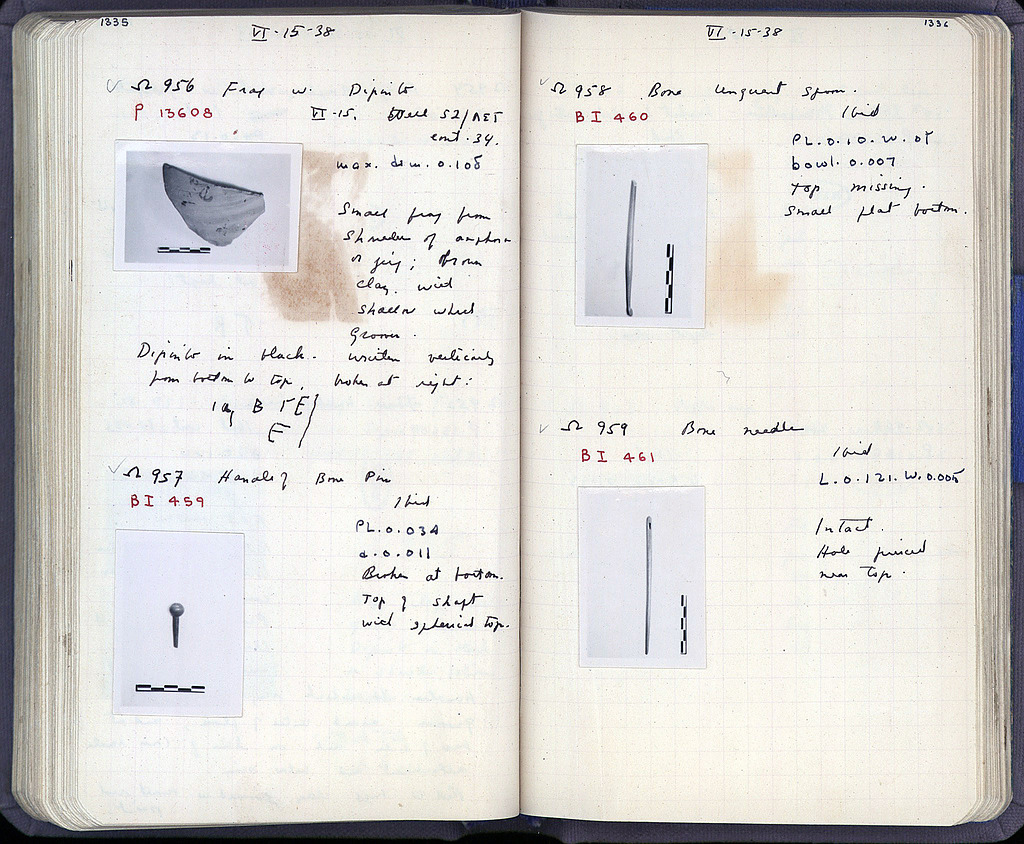 1335
VI-15-38
Ω 956 Frag w. Dipinto
P 13608
VI-15. Well 52/ΛΕΤ
cont. 34.
max. dim. 0.108
Small frag from
shoulder of amphora
or jug; brown
clay, with
shallow wheel
grooves.
Dipinto in black. written vertically
from bottom to top, broken at right:
B ΓΕ
Ε
Ω 957 Handle of Bone Pin
BI 459
Ibid
PL. 0.034
d. 0.011
Broken at bottom.
Top of shaft
with spherical top.
1336
VI-15-38
Ω 958 Bone unguent spoon.
BI 460
Ibid
PL. 0.10. W. of
bowl. 0.007
Top missing.
Small flat bottom.
Ω 959 Bone needle
BI 461
Ibid
L. 0.121. W. 0.005
Intact.
Hole pierced
near top.